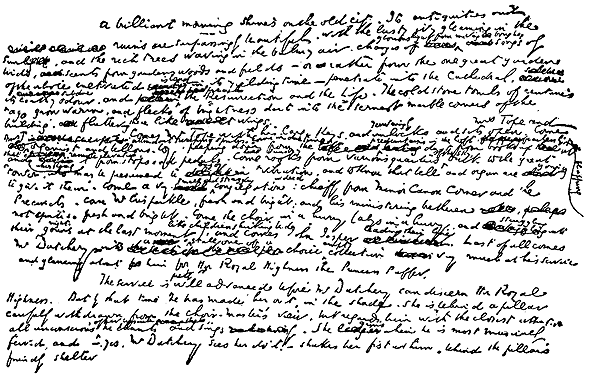 a brilliant morning shines on the old city. Its antiquities and
ruins are surpassingly beautiful, with the lusty ivy gleaming in the
sun, and the rich trees waving in the balmy air. Changes of glorious light from moving boughs songs of
birds, scents from gardens woods and fields – or rather from the one great garden
of the whole cultivated island in its yielding time – penetrate into the Cathedral, subdue
its earthy odour, and preach the Resurrection and the Life. The cold stone tombs of centuries
ago grow warm and flecks of brightness dart into the sternest marble corners of the
building, fluttering there like wings.
Comes Mr Tope with his large keys, and yawningly unlocks and sets open. Come Mrs Tope and
and bellows boy peeping down from the
stops and pedals. Come rooks from various quarters of the sky back to the great
tower who may be presumed to vibration, and to know that bell and organ are going
to give it them. Come a very small congregation: chiefly from Minor Canon Corner and the
Precincts. Come Mr Crisparkle, fresh and bright, and his ministering brethren
not quite so fresh and bright. Come the choir in a hurry (always in a hurry, and struggling into
their nightgowns at the last moment like children shirking bed) and comes John Jasper leading their line. Last of all comes
Mr Datchery into a stall one of a choice collection very much at his service
and glancing about him for Her Royal Highness the Princess Puffer.
The service is pretty well advanced before Mr Datchery can discern Her Royal
Highness. But by that time he has made her out, in the shade. She is behind a pillar
carefully withdrawn from the choir-master's view, but regards him with the closest attention
all unconscious of her presence he chants and sings. She grins when he is most musically
fervid, and – yes, Mr Datchery sees her do it! – shakes her fist at him behind the pillar's
friendly shelter